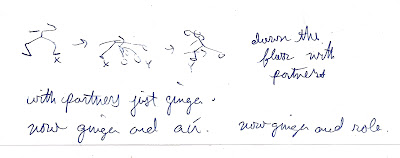 down the
floor with
partners
with partners just ginga.
now ginga and aú.
now ginga and role.